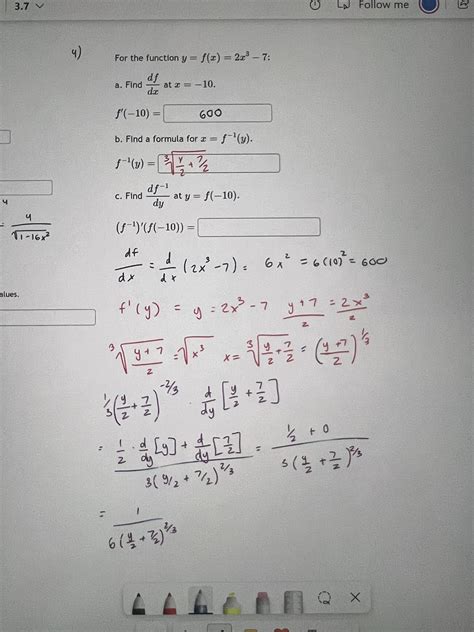 3.7
Follow me
4)
For the function y = f(x) = 2x³ − 7:
a. Find df/dx at x = −10.
f′(−10) = 600
b. Find a formula for x = f⁻¹(y).
f⁻¹(y) = ∛(y/2 + 7/2)
c. Find df⁻¹/dy at y = f(−10).
(f⁻¹)′(f(−10)) =
4
= 4/√(1-16x²)
alues.
df/dx = d/dx (2x³ − 7) = 6x² = 6(10)² = 600
f'(y) = y = 2x³ − 7 (y+7)/2 = 2x³/2
∛((y+7)/2) = ∛x³ x = ∛(y/2 + 7/2) = ((y+7)/2)^1/3
1/3 (y/2 + 7/2)^-2/3 · d/dy [y/2 + 7/2]
= (1/2 · d/dy [y] + d/dy [7/2]) / (3(y/2 + 7/2)^2/3) = (1/2 + 0) / (3(y/2 + 7/2)^2/3)
= 1 / (6(y/2 + 7/2)^2/3)